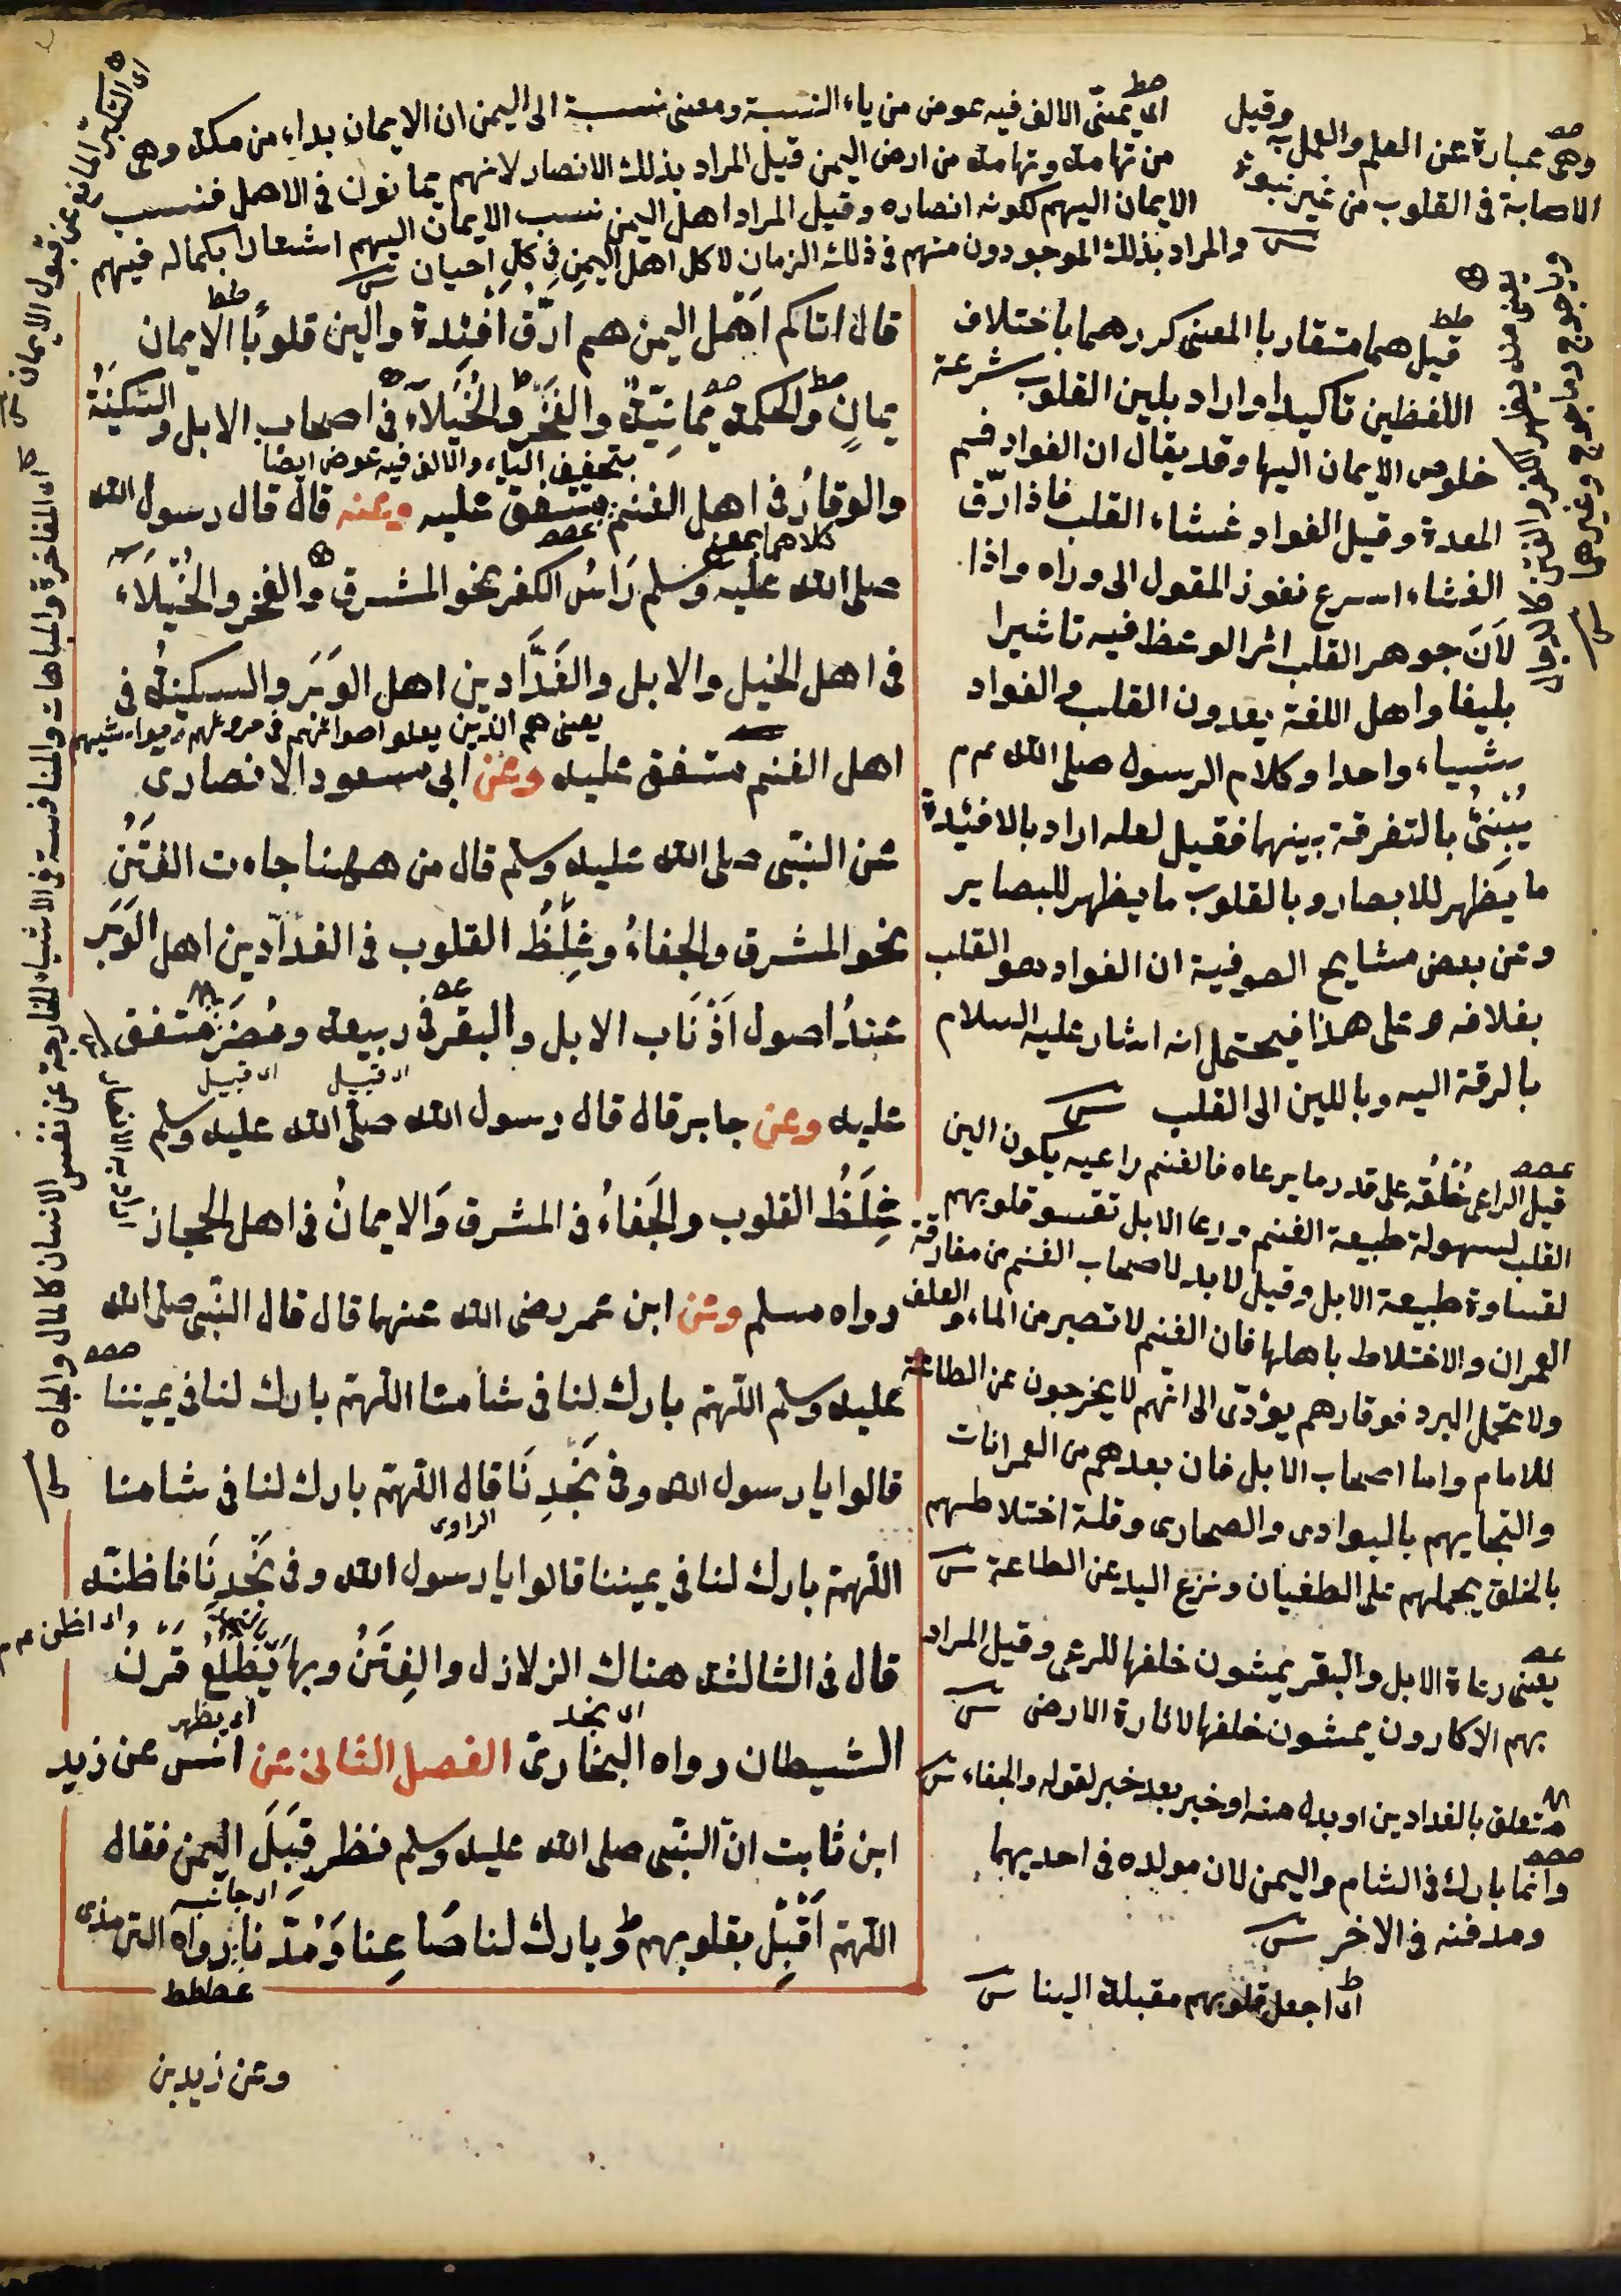 اى يمنىّ الالف فيه عوض من ياء النسبة ومعنى نسبة الى اليمن ان الايمان بداء من مكة وهى
من تهامة وتهامة من ارض اليمن قيل المراد بذلك الانصار لانهم يمانون فى الاهل فنسب
الايمان اليهم لكونه انصاره وقيل المراد اهل اليمن نسب الايمان اليهم اشعارا بكماله فيهم
والمراد بذلك الموجودون منهم فى ذلك الزمان لا كل اهل اليمن فى كل احيان
وهى عبارة عن العلم والعمل به وقيل
الاصابة فى القلوب من غير نبوة
قال اتاكم اَهْل اليمن هم ارّق افْئِدة والين قلوبًا الايمان
يمانٍ والحكمة يمانِيّة والفَخْر والخُيَلآء فى اصحاب الابل والسّكيَنَةُ
بتخفيف الياء والالف فيه عوض ايضا
والوقارُ فى اهل الغنم متفق عليه وعنه قال قال رسول الله
كلاهما بمعنى
صلى الله عليه وسلم رَاسُ الكفر نحو المشرق والفخر والخُيَلَاءُ
فى اهل الخيل والابل والفَدَّادين اهل الوَبَر والسكينةُ فى
يعنى هم الذين يعلو اصواتهم فى حروثهم ومواشيهم
اهل الغنم متفق عليه وعن ابى مسعود الانصارى
عن النبّى صلى الله عليه وسلم قال من ههنا جاءت الفتَنُ
نحو المشرق والجفاءُ وغِلَظُ القلوب فى الفدّادين اهل الوَبَر
عندُ اصول اَذْنَاب الابل والبقر فى ربيعة ومُضَرَ متفق
اى قبيل اى قبيل
عليه وعن جابر قال قال رسول الله صلّى الله عليه وسلم
غِلَظُ القلوب والجَفاءُ فى المشرق وَالايمانُ فى اهل الحجاز
رواه مسلم وعن ابن عمر رضى الله عنهما قال قال النّبى صلى الله
عليه وسلم اللّهمّ بارك لنا فى شأمنا اللّهمّ بارك لنا فى يمننا
قالوا يا رسول الله وفى نَجْدِنَا قال اللّهمّ بارك لنا فى شامنا
الراوى
اللّهمّ بارك لنا فى يمننا قالوا يا رسول الله وفى نَجْدِنَا فاظنّه
قال فى الثالثة هناك الزلازل والفِتَنُ وبهَا يَطْلُعُ قَرْنُ
اى نجد اى يظهر
الشيطان رواه البخارىّ الفصل الثانى عن انس عن زيد
ابن ثابت انّ النّبّى صلى الله عليه وسلم نظر قِبَلَ اليمن فقال
اى جانبه
اللّهمّ اَقْبِل بقلوبهم وبارك لنا صَاعِنا وَمُدّنا رواه الترمذى
وعن زيد بن
قيل هما متقاربا المعنى كررهما باختلاف
اللفظين تاكيدا او اراد بلين القلوب شرعة
خلوص الايمان اليها وقد يقال ان الفواد فم
المعدة وقيل الفواد غشاء القلب فاذا رّق
الغشاء اسرع نفوذ المقول الى وراه واذا
لَانَ جوهر القلب اثر الوعظ فيه تاثيرا
بليغا واهل اللغة يعدون القلب والفواد
شياء واحدا وكلام الرسول صلى الله
يُبْنِئُ بالتفرقة بينهما فقيل لعله اراد بالافئدة
ما يظهر للابصار وبالقلوب ما يظهر للبصاير
وعن بعض مشايخ الصوفية ان الفواد هو القلب
بغلافه وعلى هذا فيحتمل انه اشار عليه السلام
بالرقة اليه وباللين الى القلب
قيل الراعى خُلُقه على قدر ما يرعاه فالغنم راعيه يكون الين
القلب لسهولة طبيعة الغنم وراعا الابل تقسو قلوبهم
لقساوة طبيعة الابل وقيل لابد لاصحاب الغنم من مفارقة
العمران والاختلاط باهلها فان الغنم لا تصبر من الماء والعلف
ولا تحمل البرد فوقارهم يؤدّى الى انّهم لا يخرجون عن الطاعة
للامام واما اصحاب الابل فان بعدهم من العمرانات
والتجايهم بالبوادى والصحارى وقلة اختلاطهم
بالخلق يحملهم على الطغيان ونزع اليد عن الطاعة
يعنى رعاة الابل والبقر يمشون خلفها للرعى وقيل المراد
بهم الاكارون يمشون خلفها لاثارة الارض
متعلق بالفدادين او بدل منه او خبر بعد خبر لقوله والجفاء
وانما بارك فى الشام واليمن لان مولده فى احديهما
ومدفنه فى الاخر
اى اجعل قلوبهم مقبلة الينا
وياجوج وماجوج وغيرهما
اى التكبّر المانع عن قبول الايمان
اى المفاخرة والمباهات والمنافسة فى الاشياء الخارجة عن نفس الانسان كالمال والجاه